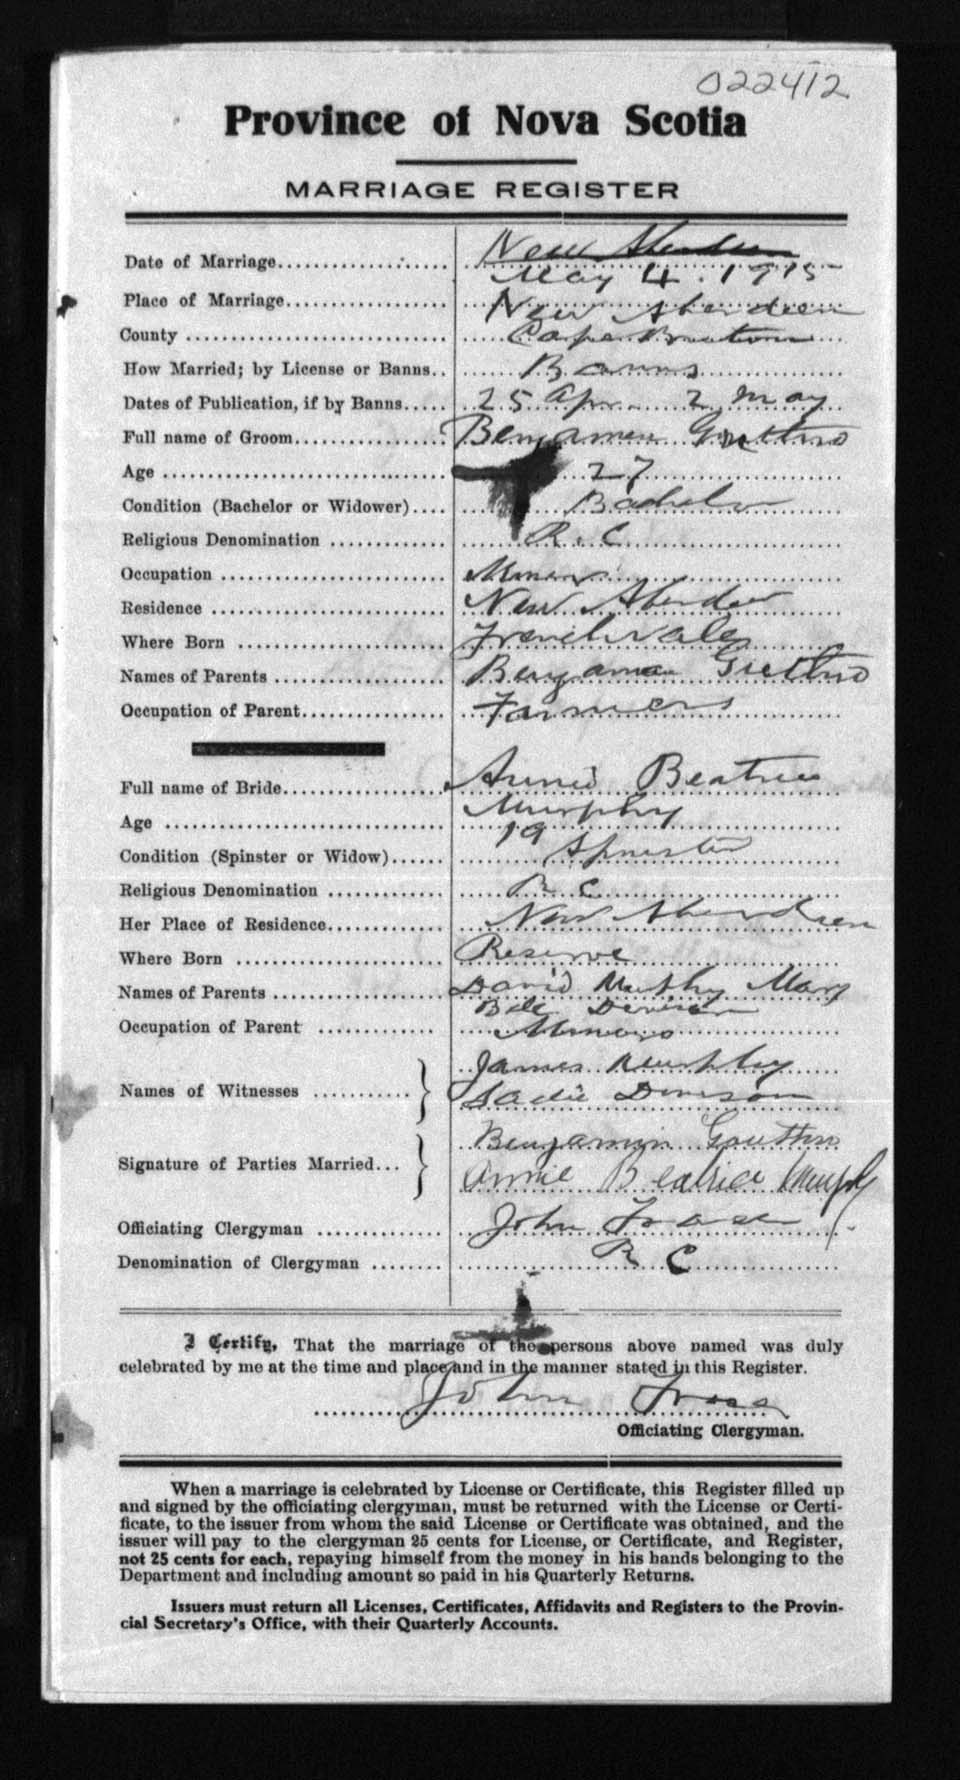 022412
Province of Nova Scotia
MARRIAGE REGISTER
New Aberdeen
Date of Marriage May 4. 1915
Place of Marriage New Aberdeen
County Cape Breton
How Married; by License or Banns Banns
Dates of Publication, if by Banns 25 Apr. 2 May
Full name of Groom Benjamen
Age 27
Condition (Bachelor or Widower) Bachelor
Religious Denomination R. C
Occupation Miner
Residence New Aberdeen
Where Born Frenchvale
Names of Parents Benjamen
Occupation of Parent Farmers
Full name of Bride Annie Beatrice
Murphy
Age 19
Condition (Spinster or Widow) Spinster
Religious Denomination R C
Her Place of Residence New Aberdeen
Where Born Reserve
Names of Parents David Murphy Mary
Bell
Occupation of Parent Miners
James Murphy
Names of Witnesses
Sadie Denison
Benjamin
Signature of Parties Married
Annie Beatrice Murphy
Officiating Clergyman John Fraser
Denomination of Clergyman R C
I Certify, That the marriage of the persons above named was duly
celebrated by me at the time and place and in the manner stated in this Register.
John Fraser
Officiating Clergyman.
When a marriage is celebrated by License or Certificate, this Register filled up
and signed by the officiating clergyman, must be returned with the License or Certi-
ficate, to the issuer from whom the said License or Certificate was obtained, and the
issuer will pay to the clergyman 25 cents for License, or Certificate, and Register,
not 25 cents for each, repaying himself from the money in his hands belonging to the
Department and including amount so paid in his Quarterly Returns.
Issuers must return all Licenses, Certificates, Affidavits and Registers to the Provin-
cial Secretary's Office, with their Quarterly Accounts.